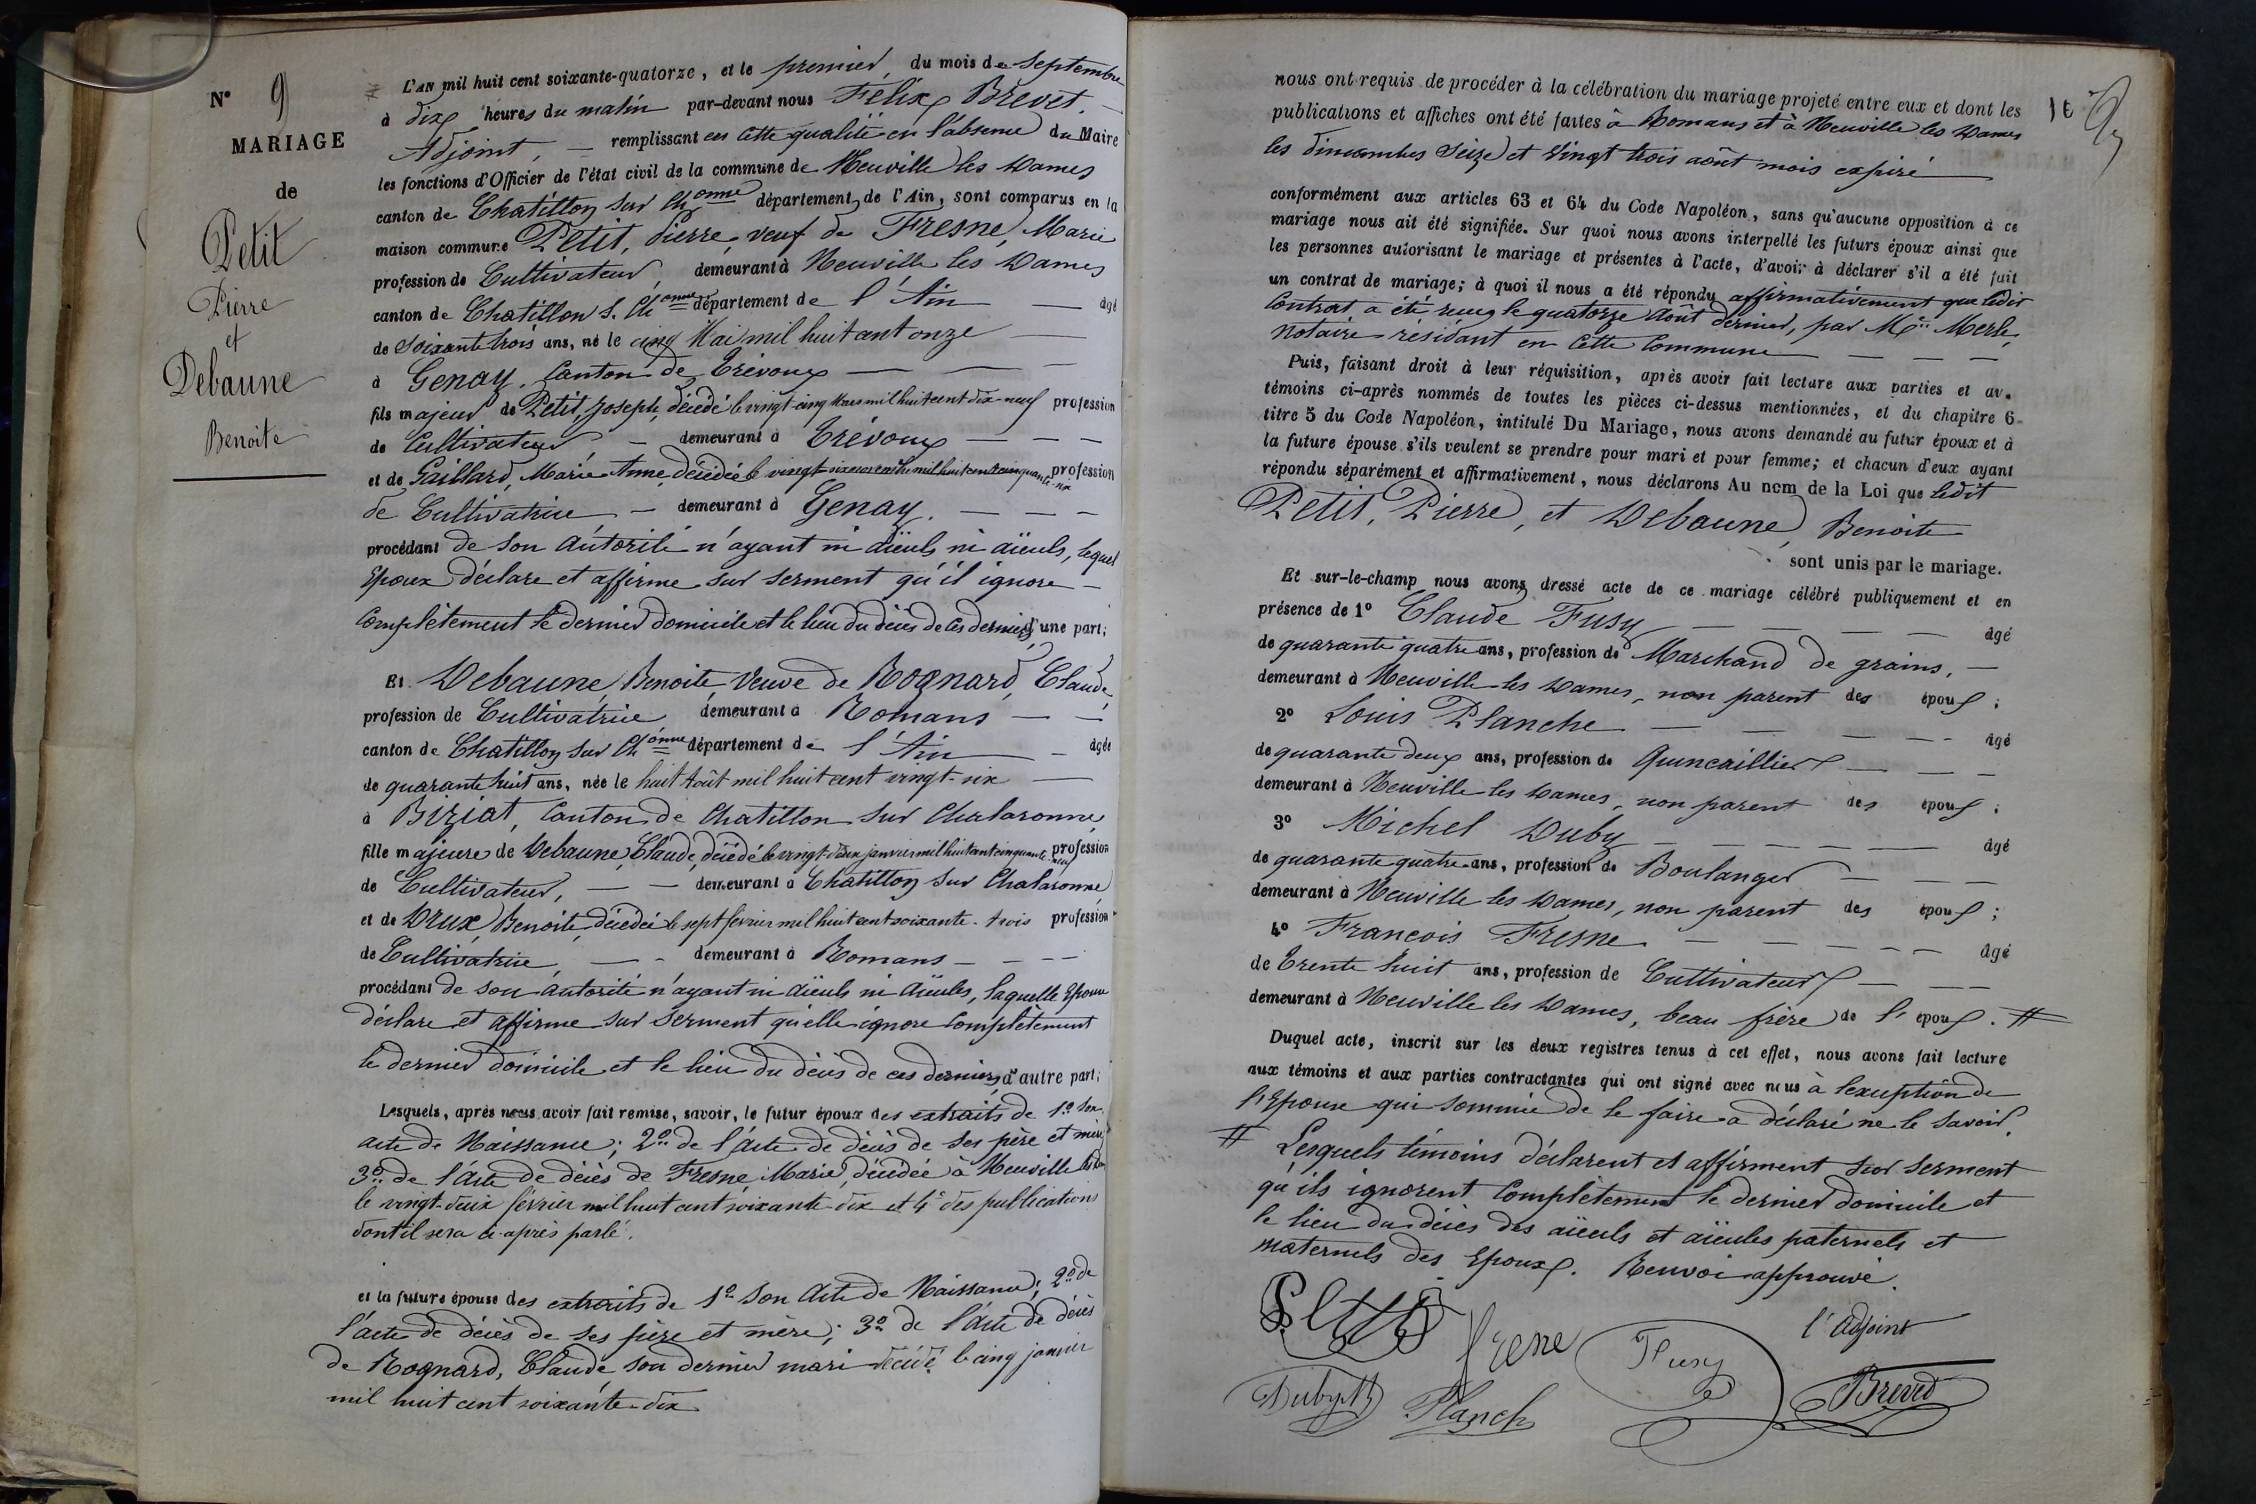 N° 9
MARIAGE
de
Petit
Pierre
et
Debaune
Benoite
L'AN mil huit cent soixante-quatorze, et le premier du mois de Septembre
à dix heures du matin par-devant nous Félix Brevet
Adjoint, — remplissant en cette qualité en l'absence du Maire
les fonctions d'Officier de l'état civil de la commune de Neuville les Dames
canton de Chatillon sur Ch onne département de l'Ain, sont comparus en la
maison commune Petit, Pierre, veuf de Fresne, Marie
profession de Cultivateur demeurant à Neuville les Dames
canton de Chatillon s. Ch onne département de l'Ain — âgé
de Soixante trois ans, né le cinq Mai mil huit cent onze —
à Genay, Canton de Trévoux — —
fils majeur de Petit, Joseph, décédé le vingt-cinq Mars mil huit cent dix-neuf profession
de Cultivateur — demeurant à Trévoux — — —
et de Gaillard, Marie Anne, décédée le vingt-six mil huit cent cinquante-six profession
de Cultivatrice — demeurant à Genay. — — —
procédant de son autorité n'ayant ni aïeuls ni aïeuls, lequel
Epoux déclare et affirme sur serment qu'il ignore —
Complètement le dernier domicile et le lieu du décès de ces derniers d'une part;
Et Debaune, Benoite, Veuve de Rognard, Claude,
profession de Cultivatrice demeurant à Romans — —
canton de Chatillon sur Ch onne département de l'Ain — âgée
de quarante huit ans, née le huit Août mil huit cent vingt-six —
à Biziat, Canton de Chatillon sur Chalaronne,
fille majeure de Debaune, Claude, décédé le vingt-deux janvier mil huit cent cinquante-neuf profession
de Cultivateur, — — demeurant à Chatillon sur Chalaronne
et de Drux, Benoite, décédée le sept février mil huit cent soixante-trois profession
de Cultivatrice, — - demeurant à Romans — — —
procédant de son autorité n'ayant ni aïeuls ni aïeules, laquelle Epouse
déclare et affirme sur serment qu'elle ignore Complètement
le dernier domicile et le lieu du décès de ces derniers d'autre part;
Lesquels, après nous avoir fait remise, savoir, le futur époux des extraits de 1° Son
acte de Naissance; 2° de l'acte de décès de ses père et mère,
3° de l'Acte de décès de Fresne, Marie, décédée à Neuville les Dames
le vingt-deux février mil huit cent soixante-dix et 4° des publications
dont il sera ci-après parlé.
et la future épouse des extraits de 1° Son Acte de Naissance; 2° de
l'acte de décès de ses père et mère; 3° de l'Acte de décès
de Rognard, Claude son dernier mari décédé le cinq janvier
mil huit cent soixante-dix
nous ont requis de procéder à la célébration du mariage projeté entre eux et dont les
publications et affiches ont été faites à Romans et à Neuville les Dames
les dimanches Seize et Vingt trois août mois expiré —
conformément aux articles 63 et 64 du Code Napoléon, sans qu'aucune opposition à ce
mariage nous ait été signifiée. Sur quoi nous avons interpellé les futurs époux ainsi que
les personnes autorisant le mariage et présentes à l'acte, d'avoir à déclarer s'il a été fait
un contrat de mariage; à quoi il nous a été répondu affirmativement que ledit
Contrat a été reçu le quatorze Août dernier, par Me Merle,
Notaire résidant en Cette Commune — — — —
Puis, faisant droit à leur réquisition, après avoir fait lecture aux parties et aux
témoins ci-après nommés de toutes les pièces ci-dessus mentionnées, et du chapitre 6
titre 5 du Code Napoléon, intitulé Du Mariage, nous avons demandé au futur époux et à
la future épouse s'ils veulent se prendre pour mari et pour femme; et chacun d'eux ayant
répondu séparément et affirmativement, nous déclarons Au nom de la Loi que ledit
Petit, Pierre, et Debaune, Benoite
sont unis par le mariage.
Et sur-le-champ nous avons dressé acte de ce mariage célébré publiquement et en
présence de 1° Claude Fusy — — — — âgé
de quarante quatre ans, profession de Marchand de grains, —
demeurant à Neuville les Dames, non parent des époux ;
2° Louis Planche — — — — âgé
de quarante deux ans, profession de Quincaillier — — —
demeurant à Neuville les Dames, non parent des époux ;
3° Michel Duby — — — — âgé
de quarante quatre ans, profession de Boulanger — — —
demeurant à Neuville les Dames, non parent des époux ;
4° François Fresne — — — — âgé
de Trente huit ans, profession de Cultivateur — — —
demeurant à Neuville les Dames, beau frère de l' époux. #
Duquel acte, inscrit sur les deux registres tenus à cet effet, nous avons fait lecture
aux témoins et aux parties contractantes qui ont signé avec nous à l'exception de
l'Epouse qui sommée de le faire a déclaré ne le savoir.
# Lesquels témoins déclarent et affirment sur serment
qu'ils ignorent Complètement le dernier domicile et
le lieu du décès des aïeuls et aïeules paternels et
maternels des Epoux. Renvoi approuvé.
Petit
frene
Fusy
l'Adjoint
Duby M
Planche
Brevet